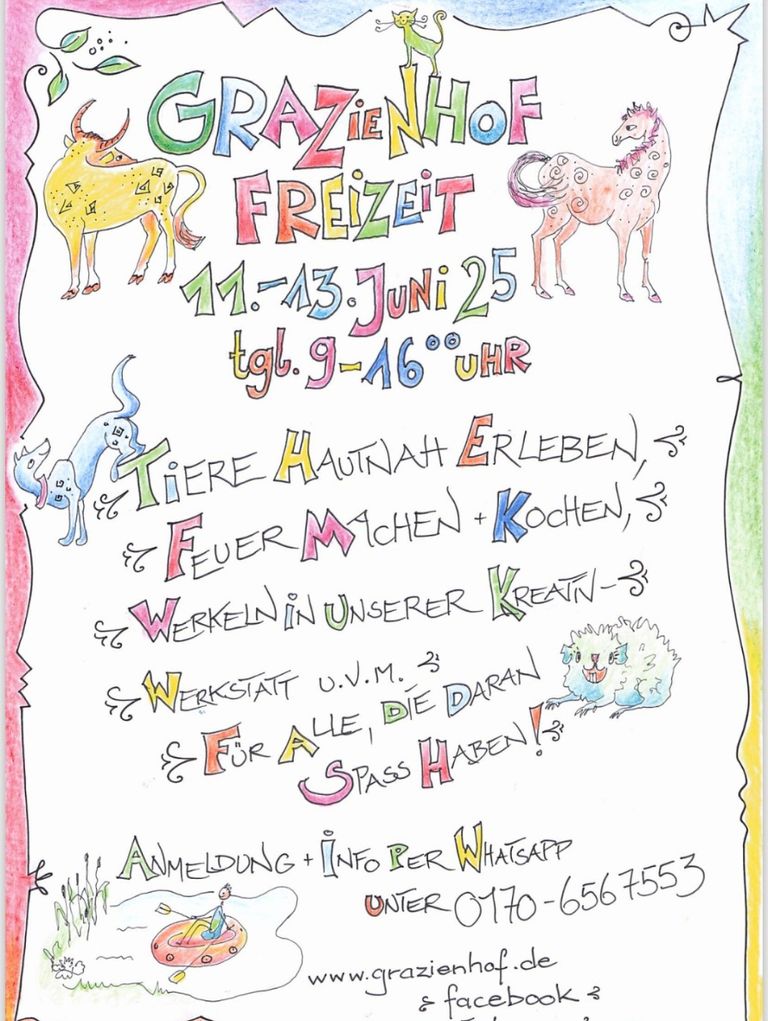 GRAZIENHOF
FREIZEIT
11.-13. JUNI 25
tgl. 9-16⁰⁰ UHR
TIERE HAUTNAH ERLEBEN,
FEUER MACHEN + KOCHEN,
WERKELN IN UNSERER KREATIV-
WERKSTATT U.V.M.
FÜR ALLE, DIE DARAN
SPASS HABEN!
ANMELDUNG + INFO PER WHATSAPP
UNTER 0170-6567553
www.grazienhof.de
facebook